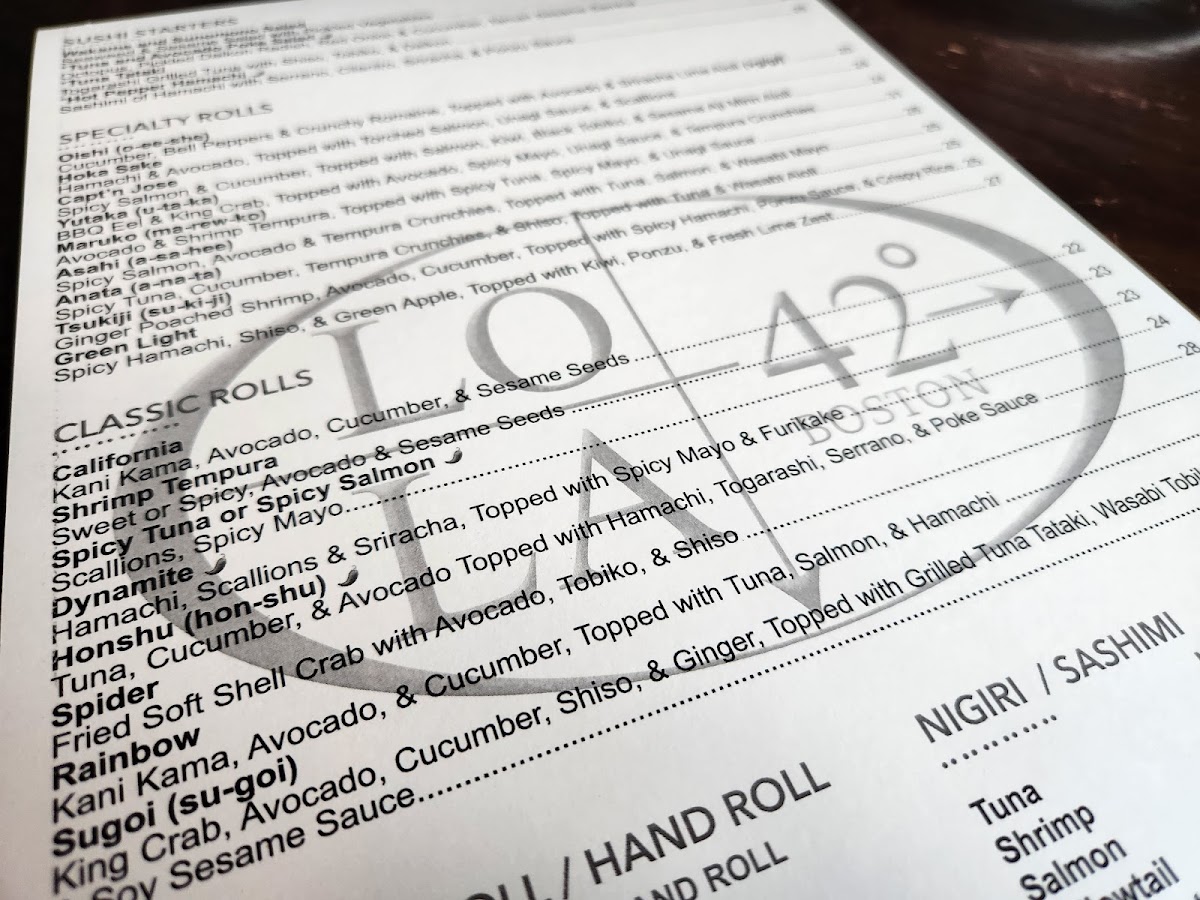 SUSHI STARTERS
Wakame and Sunomono Salad
Tuna and Avocado Poke Salad
Tuna Tataki
Togarashi Grilled Tuna with Shiso, Tobiko, & Daikon
Hot Pepper Hamachi
Sashimi of Hamachi with Serrano, Cilantro, Sriracha, & Ponzu Sauce
SPECIALTY ROLLS
Oishi (o-ee-she)
Cucumber, Bell Peppers & Crunchy Romaine, Topped with Avocado & Sriracha
Hoka Sake
Hamachi & Avocado, Topped with Torched Salmon, Unagi Sauce, & Scallions
Capt'n Jose
Spicy Salmon & Cucumber, Topped with Salmon, Kiwi, Black Tobiko, & Sesame Aji Mirin Aioli
Yutaka (u-ta-ka)
BBQ Eel & King Crab, Topped with Avocado, Spicy Mayo, Unagi Sauce, & Tempura Crunchies
Maruko (ma-rew-ko)
Avocado & Shrimp Tempura, Topped with Spicy Tuna, Spicy Mayo, & Unagi Sauce
Asahi (a-sa-hee)
Spicy Salmon, Avocado & Tempura Crunchies, Topped with Tuna, Salmon, & Wasabi Mayo
Anata (a-na-ta)
Spicy Tuna, Cucumber, Tempura Crunchies, & Shiso, Topped with Tuna & Wasabi Aioli
Tsukiji (su-ki-ji)
Ginger Poached Shrimp, Avocado, Cucumber, Topped with Spicy Hamachi, Ponzu Sauce, & Crispy Rice 27
Green Light
Spicy Hamachi, Shiso, & Green Apple, Topped with Kiwi, Ponzu, & Fresh Lime Zest
CLASSIC ROLLS
California
Kani Kama, Avocado, Cucumber, & Sesame Seeds 22
Shrimp Tempura
Sweet or Spicy, Avocado & Sesame Seeds 23
Spicy Tuna or Spicy Salmon
Scallions, Spicy Mayo 23
Dynamite
Hamachi, Scallions & Sriracha, Topped with Spicy Mayo & Furikake 24
Honshu (hon-shu)
Tuna, Cucumber, & Avocado Topped with Hamachi, Togarashi, Serrano, & Poke Sauce 28
Spider
Fried Soft Shell Crab with Avocado, Tobiko, & Shiso
Rainbow
Kani Kama, Avocado, & Cucumber, Topped with Tuna, Salmon, & Hamachi
Sugoi (su-goi)
King Crab, Avocado, Cucumber, Shiso, & Ginger, Topped with Grilled Tuna Tataki, Wasabi Tobi
Soy Sesame Sauce
LO
LA
42°
BOSTON
/ HAND ROLL
HAND ROLL
NIGIRI / SASHIMI
Tuna
Shrimp
Salmon